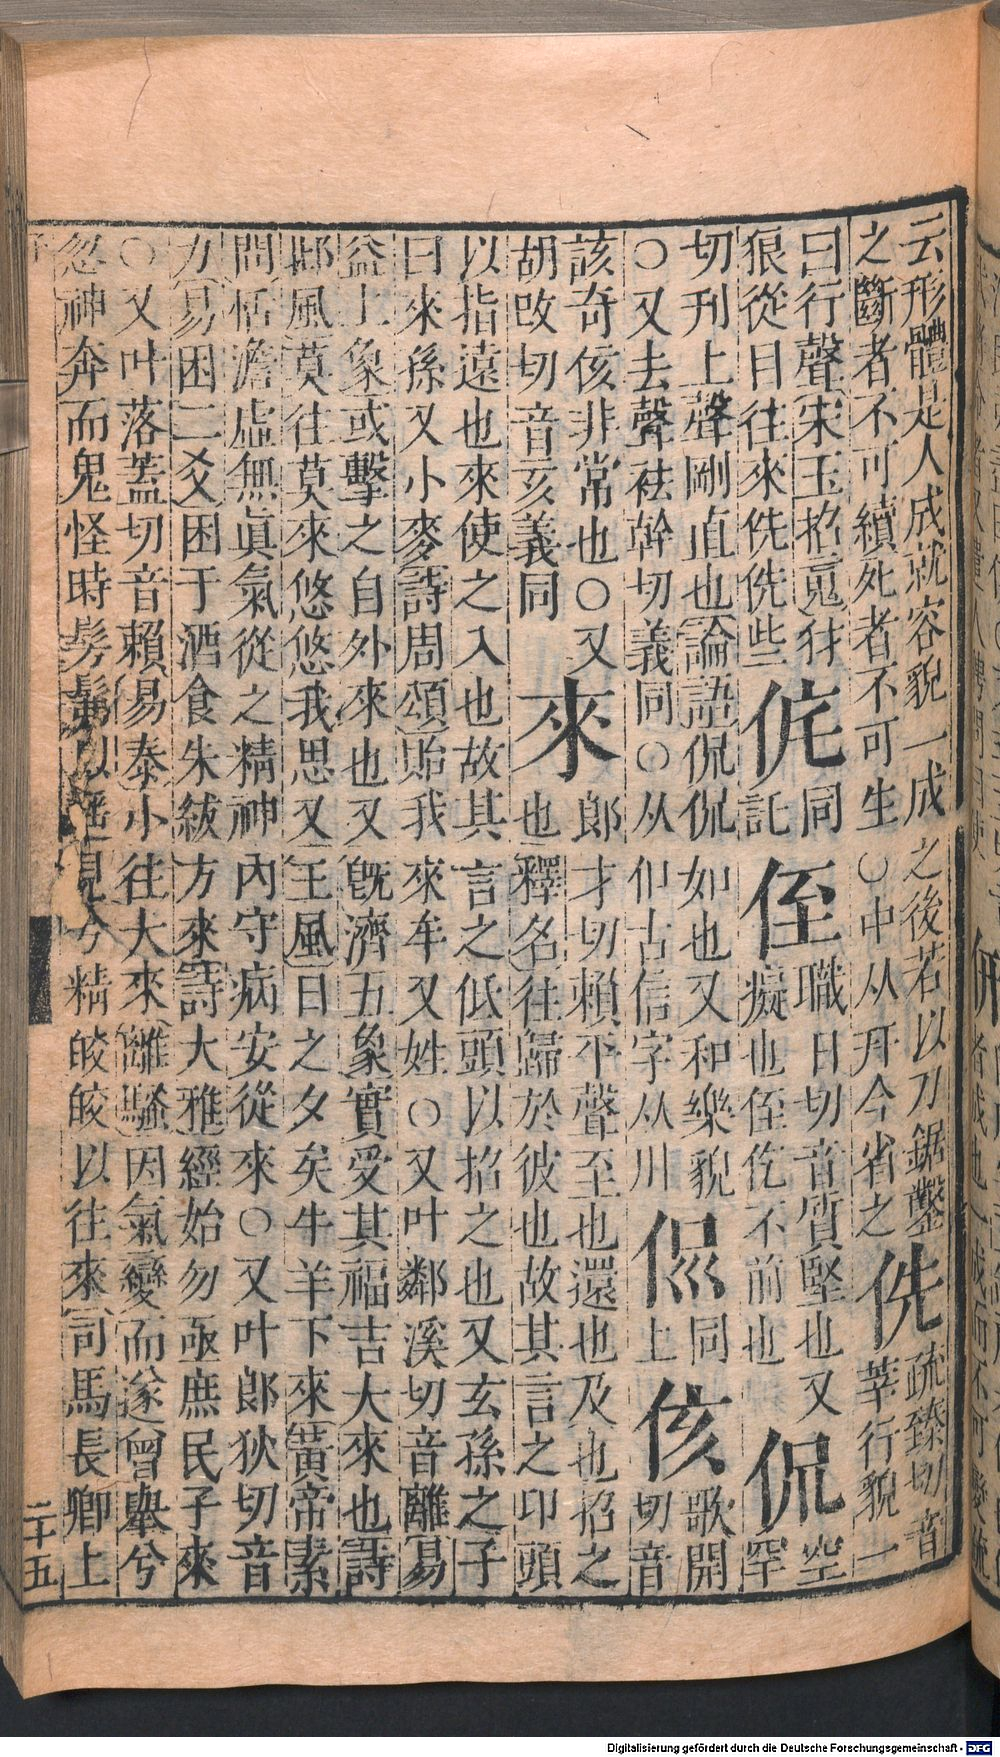 云形體是人成就容貌一成之後若以刀鋸鑿
之斷者不可續死者不可生〇中从幵今省之
侁
疏臻切音
莘行貌一
曰行聲宋玉招䰟豺
狼從目往來侁侁些
侂
同
託
侄
職日切音質堅也又
癡也侄仡不前也
侃
空
罕
切刊上聲剛直也論語侃侃如也又和樂貌
〇又去聲袪幹切義同〇从㐰古信字从川
同
上
侅
歌開
切音
該奇侅非常也〇又
胡改切音亥義同
來
郎才切賴平聲至也還也及也招之
也釋名往歸於彼也故其言之卬頭
以指遠也來使之入也故其言之低頭以招之也又玄孫之子
曰來孫又小麥詩周頌貽我來牟又姓〇又叶鄰溪切音離易
益上象或擊之自外來也又旣濟五象實受其福吉大來也詩
邶風莫往莫來悠悠我思又王風日之夕矣牛羊下來黃帝素
問恬澹虛無眞氣從之精神內守病安從來〇又叶郎狄切音
力易困二爻困于酒食朱紱方來詩大雅經始勿亟庶民子來
〇又叶落蓋切音賴易泰小往大來離騷因氣變而遂曾舉兮
忽神奔而鬼怪時髣髴以遙見兮精皎皎以往來司馬長卿上
二十五
Digitalisierung gefördert durch die Deutsche Forschungsgemeinschaft - DFG